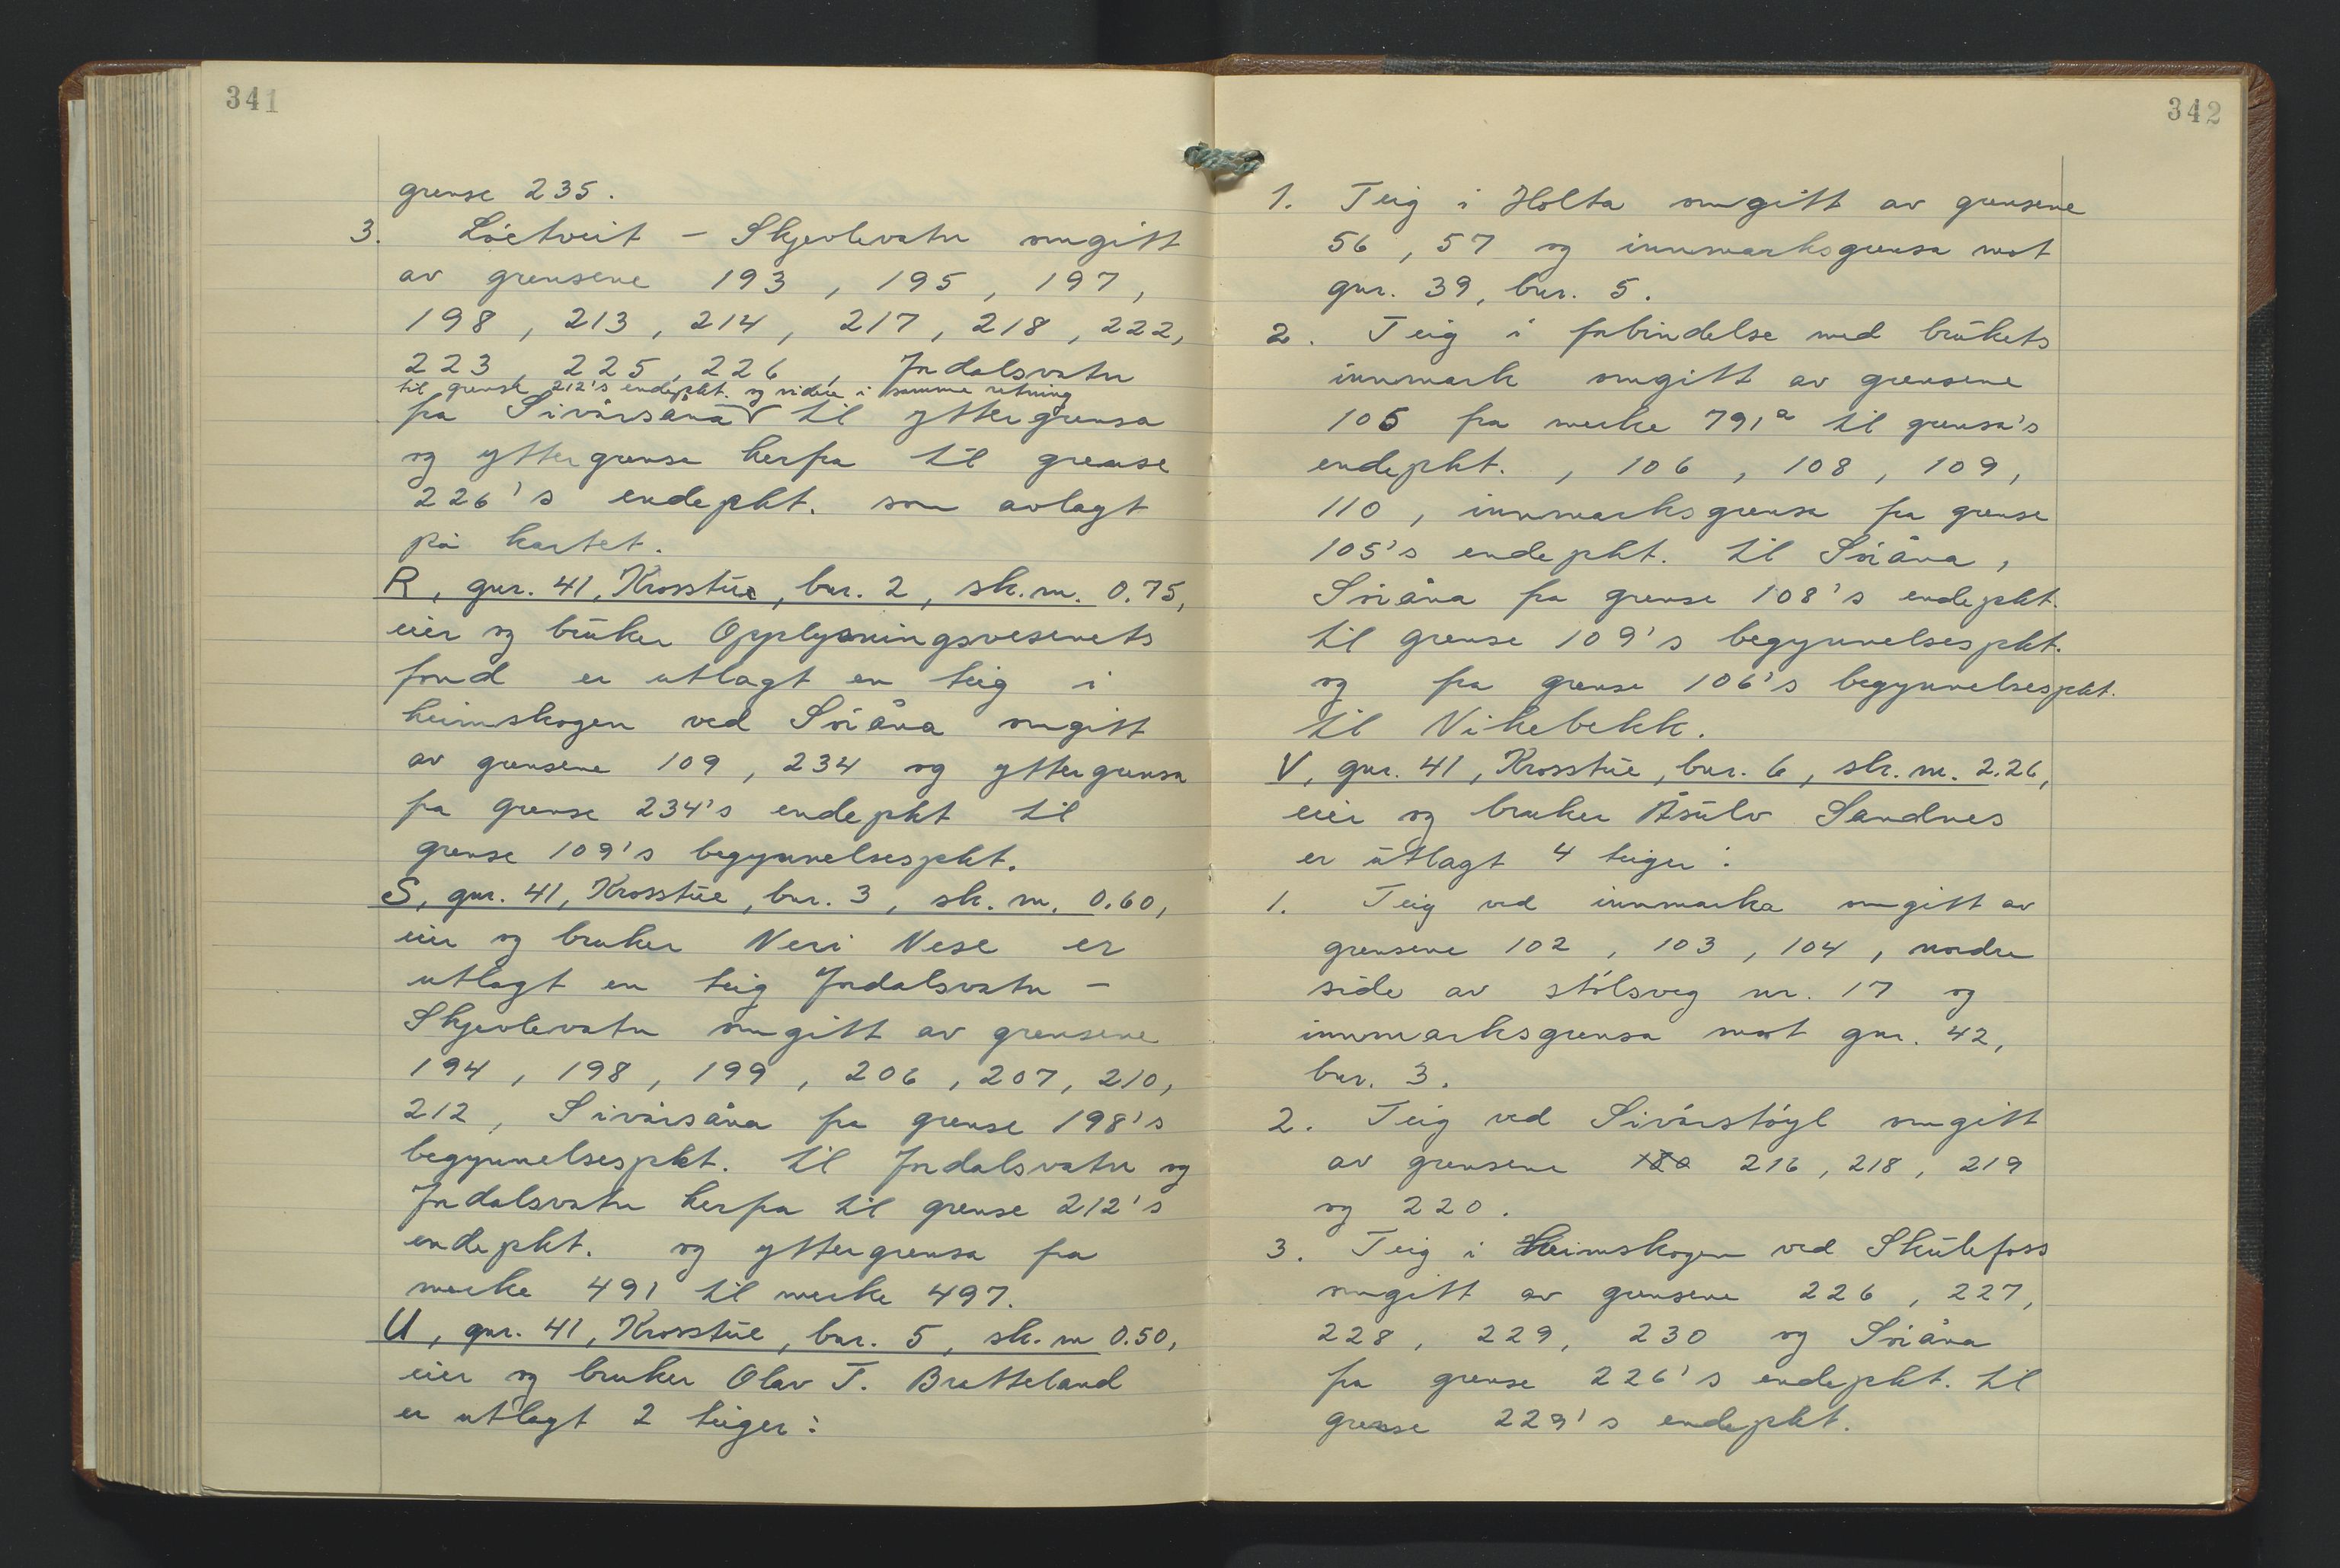 341
grense 235.
3. Løetveit – Skjevlevatn omgitt
av grensene 193, 195, 197,
198, 213, 214, 217, 218, 222,
223, 225, 226, Jordalsvatn
til grense 212's endepkt. og videre i samme retning
fra Sivårsåna til yttergrensa
og yttergrense herfra til grense
226's endepkt. som avlagt
på kartet.
R, gnr. 41, Krosstue, bnr. 2, sk.m. 0.75,
eier og bruker Opplysningsvesenets
fond er utlagt en teig i
heimskogen ved Sviåna omgitt
av grensene 109, 234 og yttergrensa
fra grense 234's endepkt til
grense 109's begynnelsespkt.
S, gnr. 41, Krosstue, bnr. 3, sk. m. 0.60,
eier og bruker Neri Nese er
utlagt en teig Jordalsvatn –
Skjevlevatn omgitt av grensene
194, 198, 199, 206, 207, 210,
212, Sivårsåna fra grense 198's
begynnelsespkt. til Jordalsvatn og
Jordalsvatn herfra til grense 212's
endepkt. og yttergrensa fra
merke 491 til merke 497.
U, gnr. 41, Krosstue, bnr. 5, sk. m 0.50,
eier og bruker Olav T. Bratteland
er utlagt 2 teiger:
342
1. Teig i Holta omgitt av grensene
56, 57 og innmarksgrensa mot
gnr. 39, bnr. 5.
2. Teig i forbindelse med brukets
innmark omgitt av grensene
105 fra merke 791a til grensa's
endepkt., 106, 108, 109,
110, innmarksgrensa fra grense
105's endepkt. til Sviåna,
Sviåna fra grense 108's endepkt.
til grense 109's begynnelsespkt.
og fra grense 106's begynnelsespkt.
til Vikebekk.
V, gnr. 41, Krosstue, bnr. 6, sk. m. 2.26,
eier og bruker Åsulv Sandnes
er utlagt 4 teiger:
1. Teig ved innmarka omgitt av
grensene 102, 103, 104, nordre
side av stølsveg nr. 17 og
innmarksgrensa mot gnr. 42,
bnr. 3.
2. Teig ved Sivårstøyl omgitt
av grensene 180 216, 218, 219
og 220.
3. Teig i Heimskogen ved Skulefoss
omgitt av grensene 226, 227,
228, 229, 230 og Sviåna
fra grense 226's endepkt. til
grense 229's endepkt.